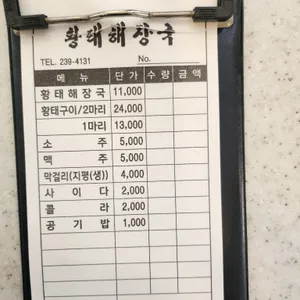 황태해장국
TEL. 239-4131 No.
메 뉴 단 가 수 량 금 액
황 태 해 장 국 11,000
황태구이/2마리 24,000
1마리 13,000
소 주 5,000
맥 주 5,000
막걸리(지평(생)) 4,000
사 이 다 2,000
콜 라 2,000
공 기 밥 1,000